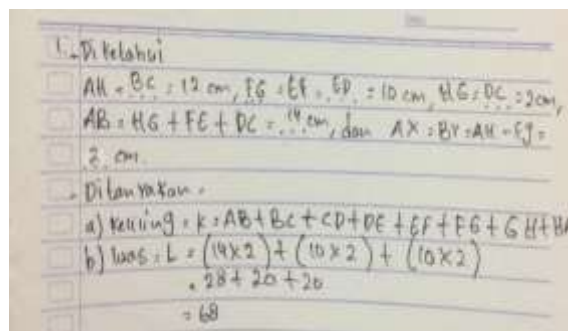 1. Diketahui
AH = BC = 12 cm, FG = EF = ED = 10 cm, HG = DC = 2cm,
AB = HG + FE + DC = 14 cm, dan AX = BY = AH - Fg =
2 cm.
- Ditanyakan =
a) Keliling = K = AB + BC + CD + DE + EF + FG + GH + HA
b) luas = L = (14 x 2) + (10 x 2) + (10 x 2)
= 28 + 20 + 20
= 68